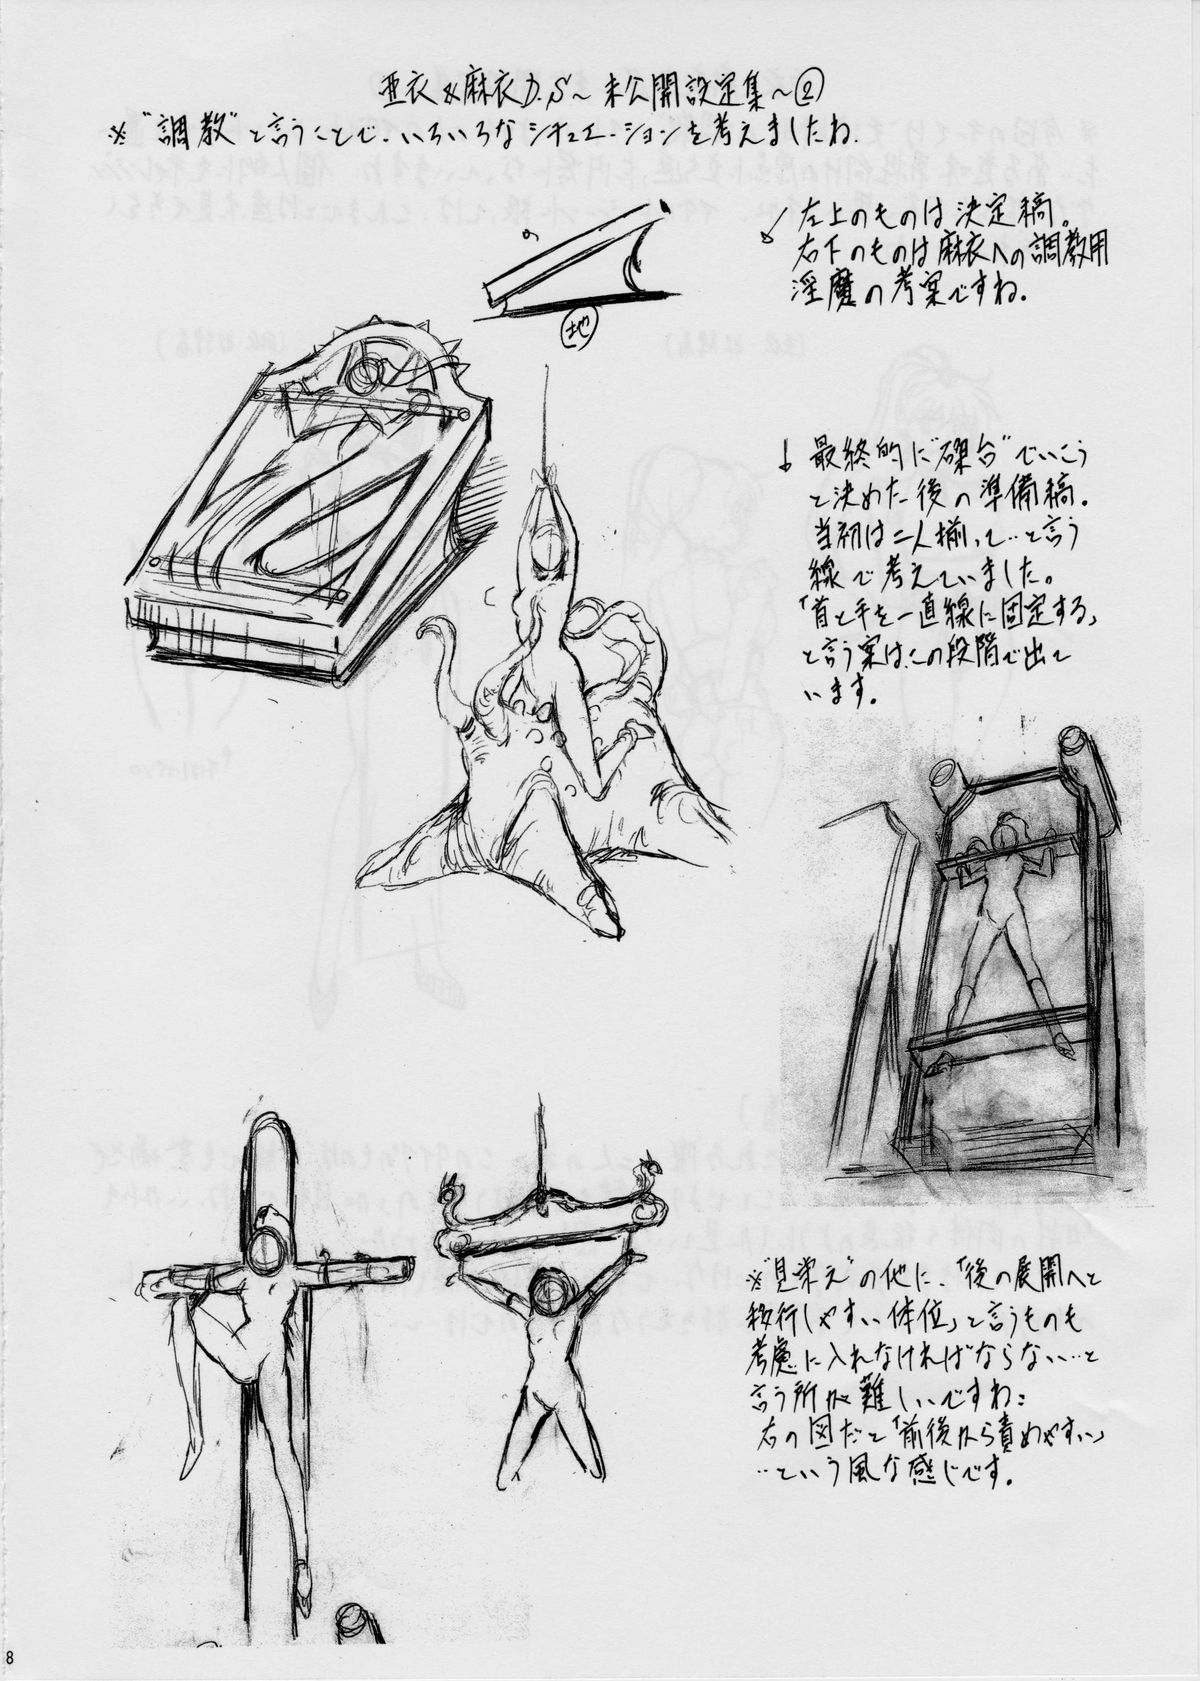 亜衣&麻衣D.S～未公開設定集～②
※"調教"と言うことで、いろいろなシチュエーションを考えましたね.
左上のものは決定稿。
右下のものは麻衣への調教用
淫魔の考案ですね.
地
↓ 最終的に"磔台"でいこう
と決めた後の準備稿.
当初は二人揃って…と言う
線で考えていました。
「首と手を一直線に固定する」
と言う案は、この段階で出て
います。
※"見栄え"の他に、「後の展開へと
移行しやすい体位」と言うものも
考慮に入れなければならない…と
言う所が難しいですね:
右の図だと「前後から責めやすい」
…という風な感じです.
8